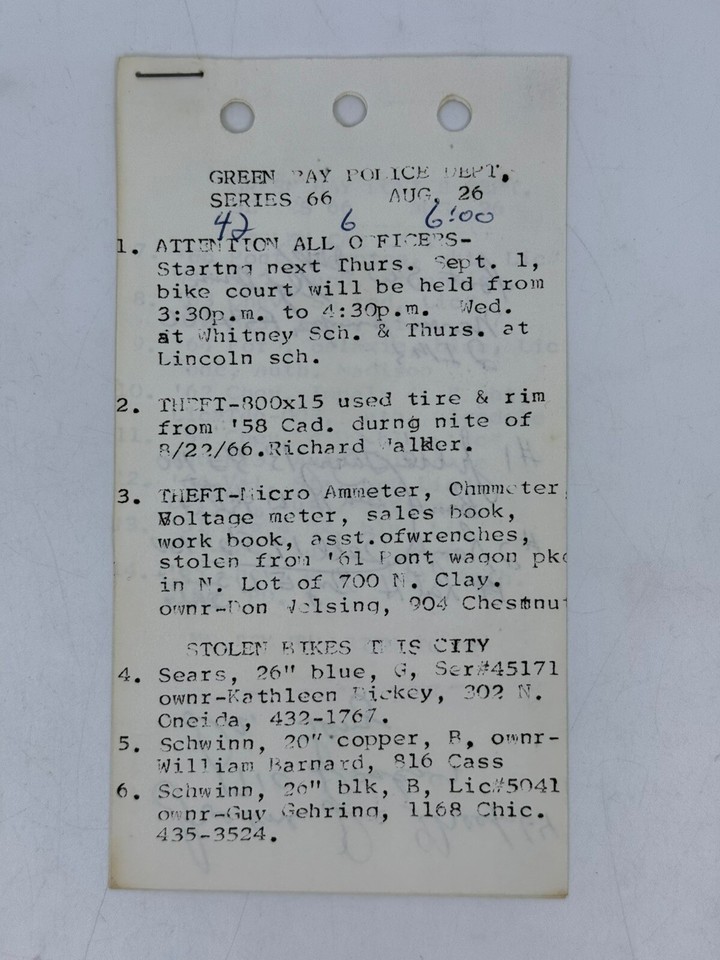 GREEN BAY POLICE DEPT.
SERIES 66 AUG. 26
42 6 6:00
1. ATTENTION ALL OFFICERS-
Startng next Thurs. Sept. 1,
bike court will be held from
3:30p.m. to 4:30p.m. Wed.
at Whitney Sch. & Thurs. at
Lincoln sch.
2. THEFT-800x15 used tire & rim
from '58 Cad. durng nite of
8/22/66.Richard Walker.
3. THEFT-Micro Ammeter, Ohmmeter,
Voltage meter, sales book,
work book, asst.ofwrenches,
stolen from '61 Pont wagon pkd
in N. Lot of 700 N. Clay.
ownr-Don Welsing, 904 Chestnut
STOLEN BIKES THIS CITY
4. Sears, 26" blue, G, Ser#45171
ownr-Kathleen Dickey, 302 N.
Oneida, 432-1767.
5. Schwinn, 20" copper, B, ownr-
William Barnard, 816 Cass
6. Schwinn, 26" blk, B, Lic#5041
ownr-Guy Gehring, 1168 Chic.
435-3524.